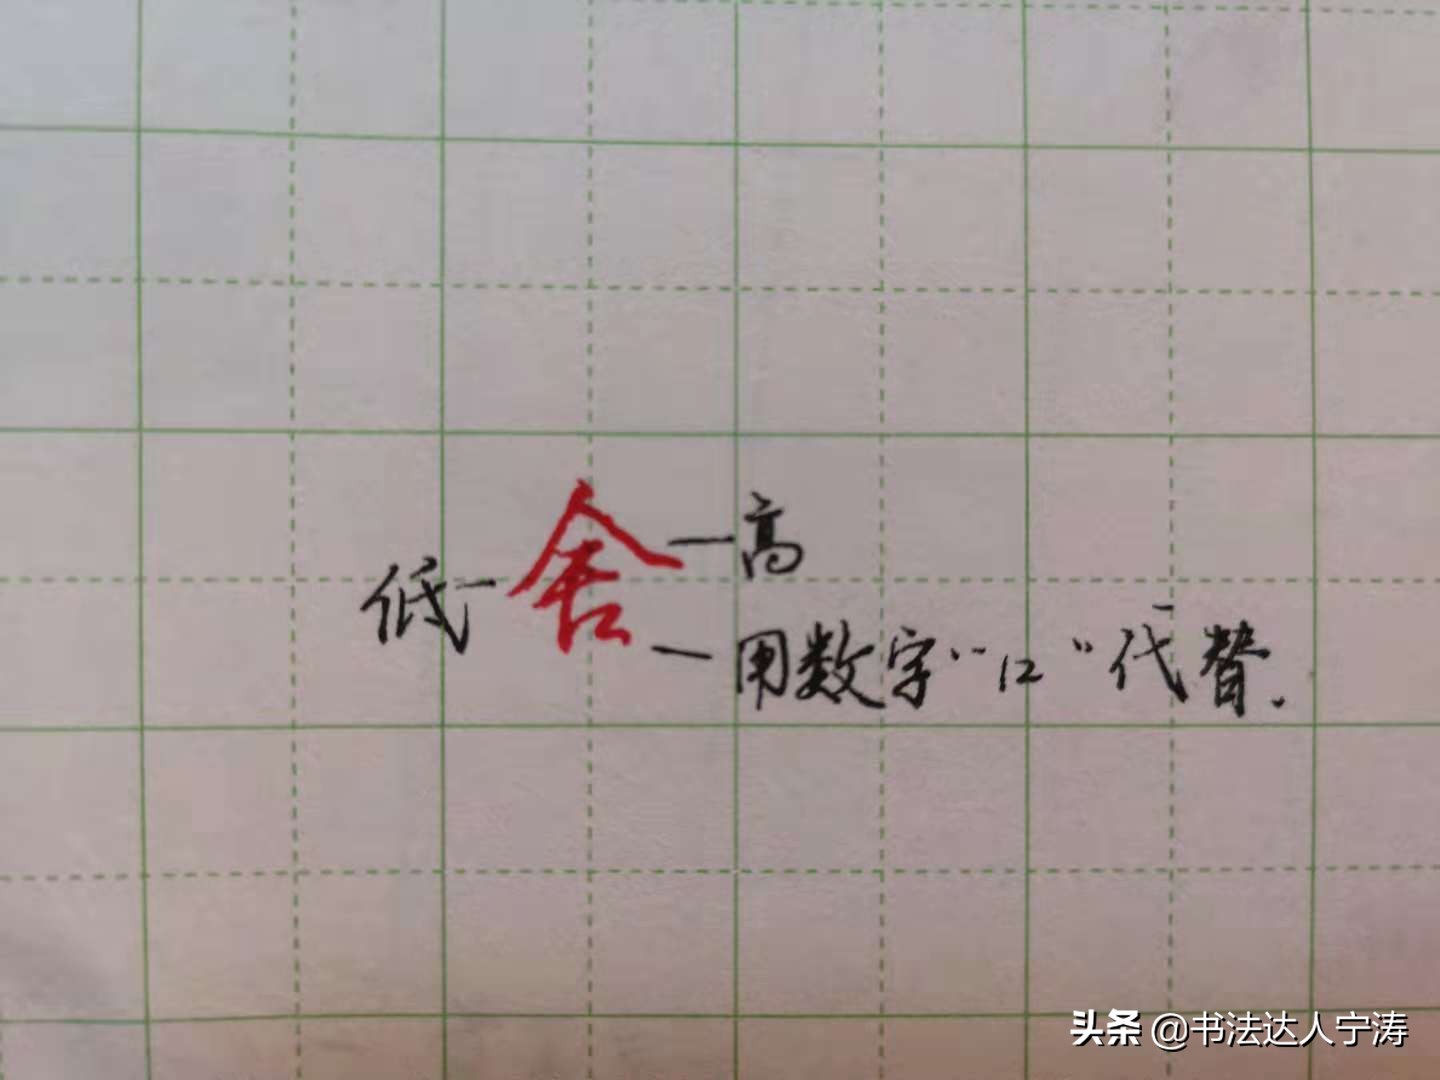 低一舍一高
一用数字“12”代替.
头条 @书法达人宁涛